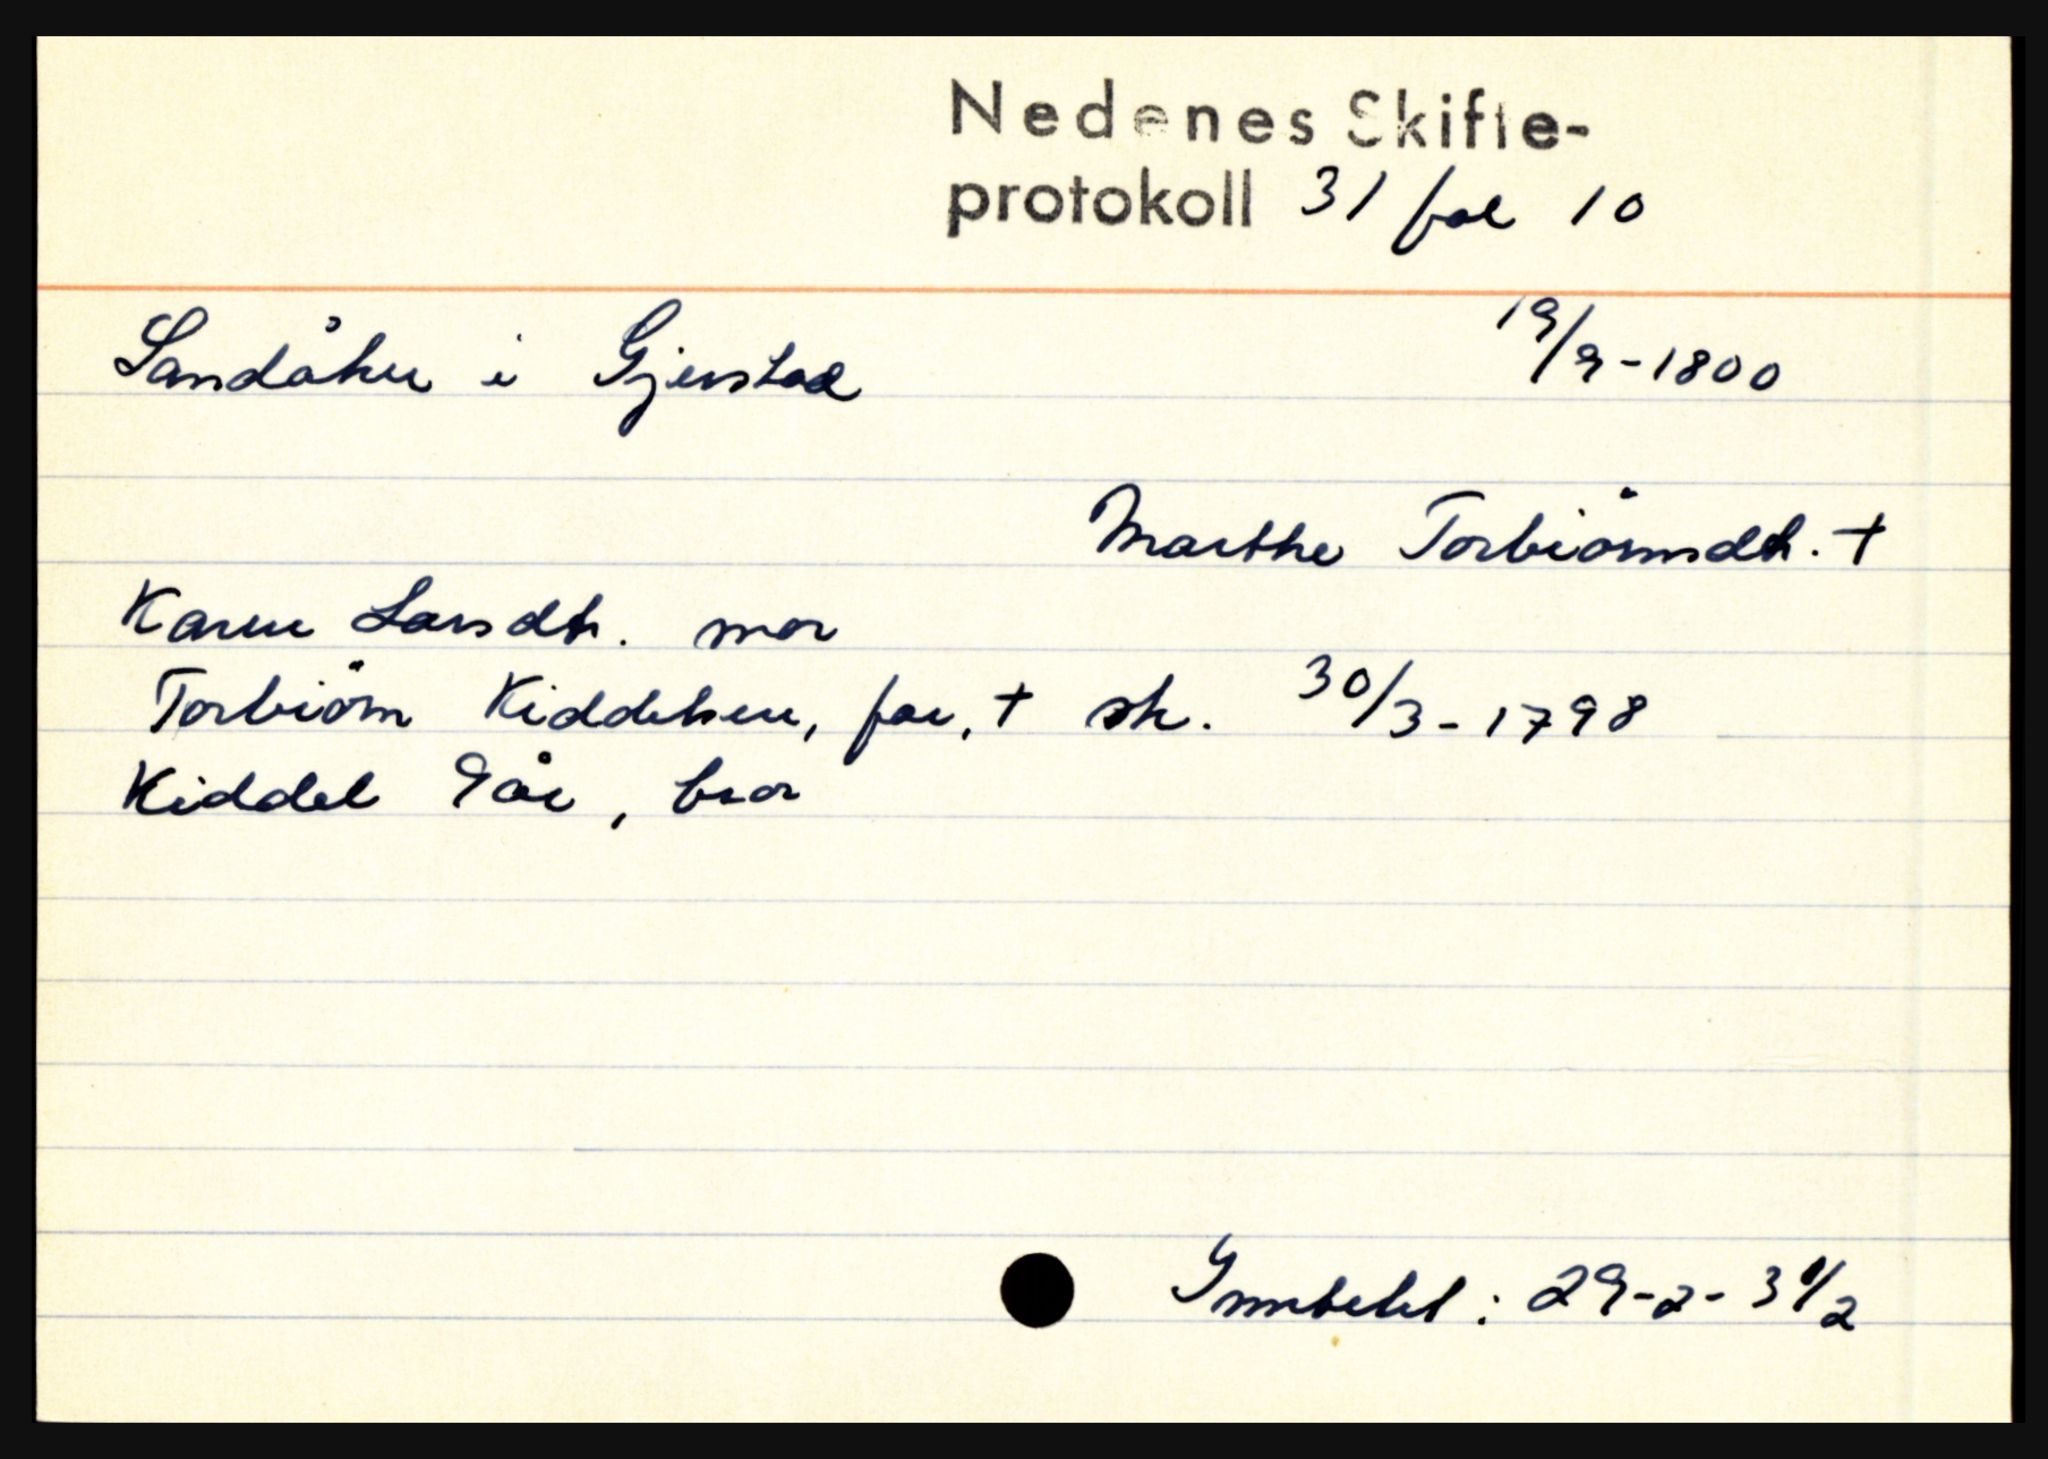 Nedenes Skifte-
protokoll 31 fol 10
Sandåker i Gjerstad 19/9-1800
Marthe Torbiörnsdtr. +
Karen Larsdtr. mor
Torbiörn Kiddelsen, far, + sk. 30/3-1798
Kiddel 9 år, bror
29-2-3 1/2